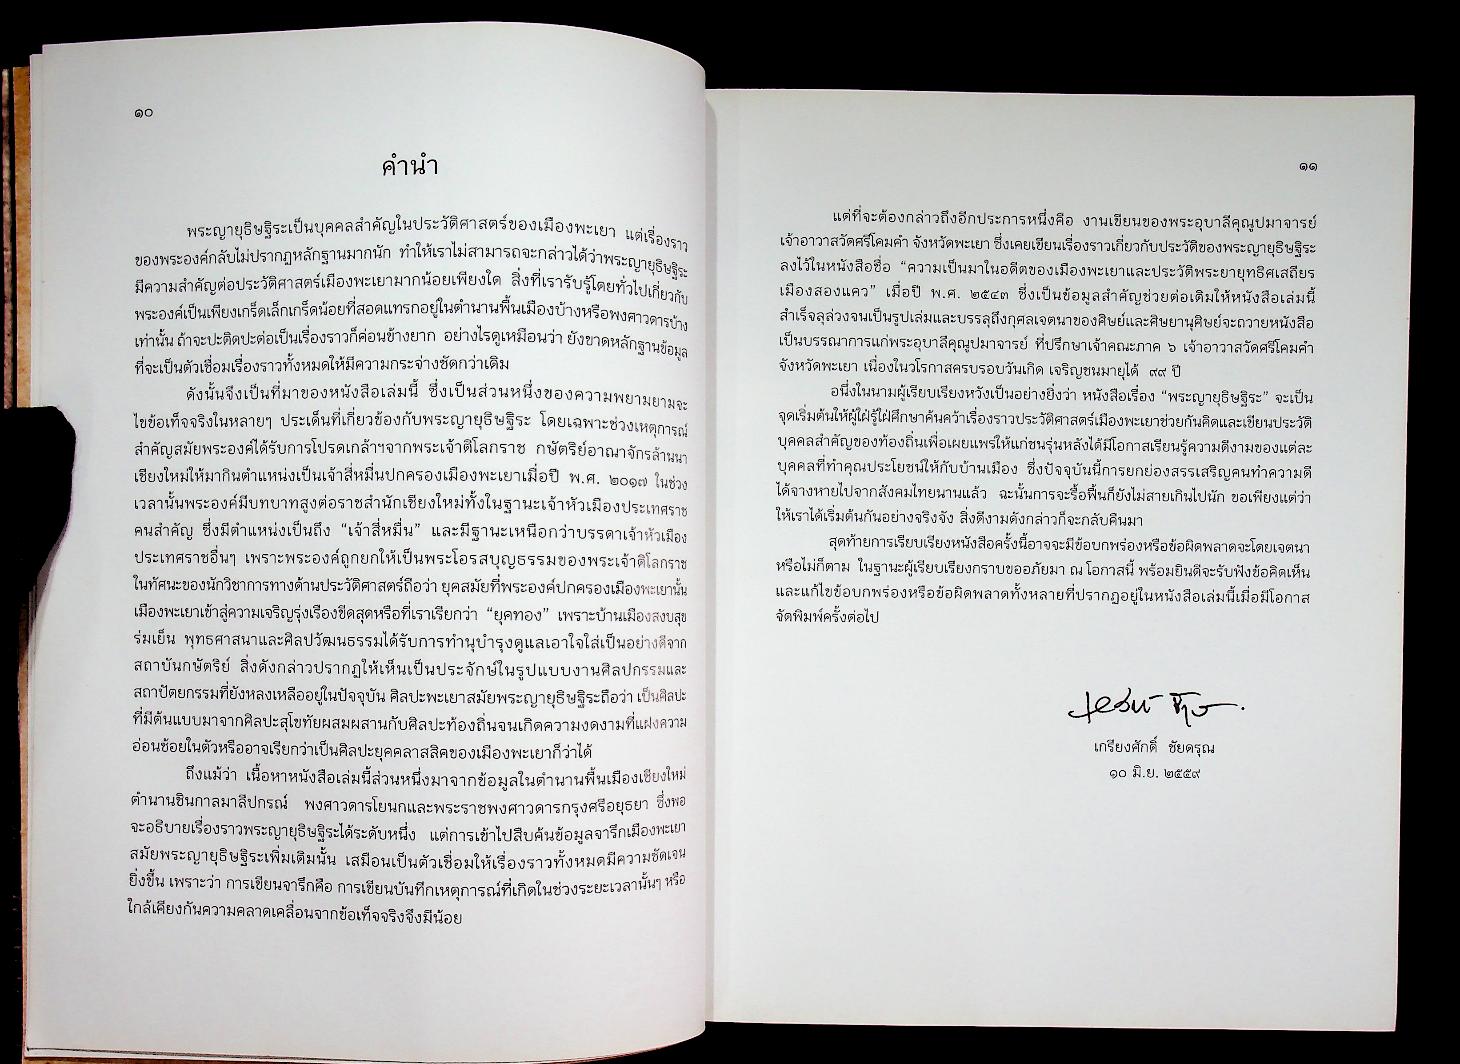 ๑๐
คำนำ
พระญายุธิษฐิระเป็นบุคคลสำคัญในประวัติศาสตร์ของเมืองพะเยา แต่เรื่องราว
ของพระองค์กลับไม่ปรากฏหลักฐานมากนัก ทำให้เราไม่สามารถจะกล่าวได้ว่าพระญายุธิษฐิระ
มีความสำคัญต่อประวัติศาสตร์เมืองพะเยามากน้อยเพียงใด สิ่งที่เรารับรู้โดยทั่วไปเกี่ยวกับ
พระองค์เป็นเพียงเกร็ดเล็กเกร็ดน้อยที่สอดแทรกอยู่ในตำนานพื้นเมืองบ้างหรือพงศาวดารบ้าง
เท่านั้น ถ้าจะปะติดปะต่อเป็นเรื่องราวก็ค่อนข้างยาก อย่างไรดูเหมือนว่า ยังขาดหลักฐานข้อมูล
ที่จะเป็นตัวเชื่อมเรื่องราวทั้งหมดให้มีความกระจ่างชัดกว่าเดิม
ดังนั้นจึงเป็นที่มาของหนังสือเล่มนี้ ซึ่งเป็นส่วนหนึ่งของความพยามยามจะ
ไขข้อเท็จจริงในหลายๆ ประเด็นที่เกี่ยวข้องกับพระญายุธิษฐิระ โดยเฉพาะช่วงเหตุการณ์
สำคัญสมัยพระองค์ได้รับการโปรดเกล้าฯจากพระเจ้าติโลกราช กษัตริย์อาณาจักรล้านนา
เชียงใหม่ให้มากินตำแหน่งเป็นเจ้าสี่หมื่นปกครองเมืองพะเยาเมื่อปี พ.ศ. ๒๐๑๗ ในช่วง
เวลานั้นพระองค์มีบทบาทสูงต่อราชสำนักเชียงใหม่ทั้งในฐานะเจ้าหัวเมืองประเทศราช
คนสำคัญ ซึ่งมีตำแหน่งเป็นถึง “เจ้าสี่หมื่น” และมีฐานะเหนือกว่าบรรดาเจ้าหัวเมือง
ประเทศราชอื่นๆ เพราะพระองค์ถูกยกให้เป็นพระโอรสบุญธรรมของพระเจ้าติโลกราช
ในทัศนะของนักวิชาการทางด้านประวัติศาสตร์ถือว่า ยุคสมัยที่พระองค์ปกครองเมืองพะเยานั้น
เมืองพะเยาเข้าสู่ความเจริญรุ่งเรืองขีดสุดหรือที่เราเรียกว่า “ยุคทอง” เพราะบ้านเมืองสงบสุข
ร่มเย็น พุทธศาสนาและศิลปวัฒนธรรมได้รับการทำนุบำรุงดูแลเอาใจใส่เป็นอย่างดีจาก
สถาบันกษัตริย์ สิ่งดังกล่าวปรากฏให้เห็นเป็นประจักษ์ในรูปแบบงานศิลปกรรมและ
สถาปัตยกรรมที่ยังหลงเหลืออยู่ในปัจจุบัน ศิลปะพะเยาสมัยพระญายุธิษฐิระถือว่า เป็นศิลปะ
ที่มีต้นแบบมาจากศิลปะสุโขทัยผสมผสานกับศิลปะท้องถิ่นจนเกิดความงดงามที่แฝงความ
อ่อนช้อยในตัวหรืออาจเรียกว่าเป็นศิลปะยุคคลาสสิคของเมืองพะเยาก็ว่าได้
ถึงแม้ว่า เนื้อหาหนังสือเล่มนี้ส่วนหนึ่งมาจากข้อมูลในตำนานพื้นเมืองเชียงใหม่
ตำนานชินกาลมาลีปกรณ์ พงศาวดารโยนกและพระราชพงศาวดารกรุงศรีอยุธยา ซึ่งพอ
จะอธิบายเรื่องราวพระญายุธิษฐิระได้ระดับหนึ่ง แต่การเข้าไปสืบค้นข้อมูลจารึกเมืองพะเยา
สมัยพระญายุธิษฐิระเพิ่มเติมนั้น เสมือนเป็นตัวเชื่อมให้เรื่องราวทั้งหมดมีความชัดเจน
ยิ่งขึ้น เพราะว่า การเขียนจารึกคือ การเขียนบันทึกเหตุการณ์ที่เกิดในช่วงระยะเวลานั้นๆ หรือ
ใกล้เคียงกันความคลาดเคลื่อนจากข้อเท็จจริงจึงมีน้อย
๑๑
แต่ที่จะต้องกล่าวถึงอีกประการหนึ่งคือ งานเขียนของพระอุบาลีคุณูปมาจารย์
เจ้าอาวาสวัดศรีโคมคำ จังหวัดพะเยา ซึ่งเคยเขียนเรื่องราวเกี่ยวกับประวัติของพระญายุธิษฐิระ
ลงไว้ในหนังสือชื่อ “ความเป็นมาในอดีตของเมืองพะเยาและประวัติพระยายุทธิศเสถียร
เมืองสองแคว” เมื่อปี พ.ศ. ๒๕๔๓ ซึ่งเป็นข้อมูลสำคัญช่วยต่อเติมให้หนังสือเล่มนี้
สำเร็จลุล่วงจนเป็นรูปเล่มและบรรลุถึงกุศลเจตนาของศิษย์และศิษยานุศิษย์จะถวายหนังสือ
เป็นบรรณาการแก่พระอุบาลีคุณูปมาจารย์ ที่ปรึกษาเจ้าคณะภาค ๖ เจ้าอาวาสวัดศรีโคมคำ
จังหวัดพะเยา เนื่องในวโรกาสครบรอบวันเกิด เจริญชนมายุได้ ๙๙ ปี
อนึ่งในนามผู้เรียบเรียงหวังเป็นอย่างยิ่งว่า หนังสือเรื่อง “พระญายุธิษฐิระ” จะเป็น
จุดเริ่มต้นให้ผู้ใฝ่รู้ใฝ่ศึกษาค้นคว้าเรื่องราวประวัติศาสตร์เมืองพะเยาช่วยกันคิดและเขียนประวัติ
บุคคลสำคัญของท้องถิ่นเพื่อเผยแพร่ให้แก่ชนรุ่นหลังได้มีโอกาสเรียนรู้ความดีงามของแต่ละ
บุคคลที่ทำคุณประโยชน์ให้กับบ้านเมือง ซึ่งปัจจุบันนี้การยกย่องสรรเสริญคนทำความดี
ได้จางหายไปจากสังคมไทยนานแล้ว ฉะนั้นการจะรื้อฟื้นก็ยังไม่สายเกินไปนัก ขอเพียงแต่ว่า
ให้เราได้เริ่มต้นกันอย่างจริงจัง สิ่งดีงามดังกล่าวก็จะกลับคืนมา
สุดท้ายการเรียบเรียงหนังสือครั้งนี้อาจจะมีข้อบกพร่องหรือข้อผิดพลาดจะโดยเจตนา
หรือไม่ก็ตาม ในฐานะผู้เรียบเรียงกราบขออภัยมา ณ โอกาสนี้ พร้อมยินดีจะรับฟังข้อคิดเห็น
และแก้ไขข้อบกพร่องหรือข้อผิดพลาดทั้งหลายที่ปรากฏอยู่ในหนังสือเล่มนี้เมื่อมีโอกาส
จัดพิมพ์ครั้งต่อไป
เกรียงศักดิ์ ชัยดรุณ
๑๐ มิ.ย. ๒๕๕๙